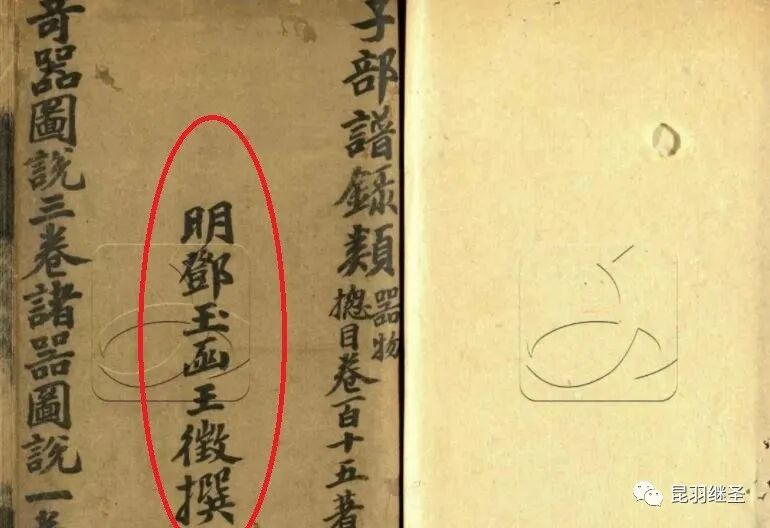 子部譜錄類器物
總目卷一百十五著
明鄧玉函王徵撰
奇器圖說三卷諸器圖說一卷
昆羽继圣